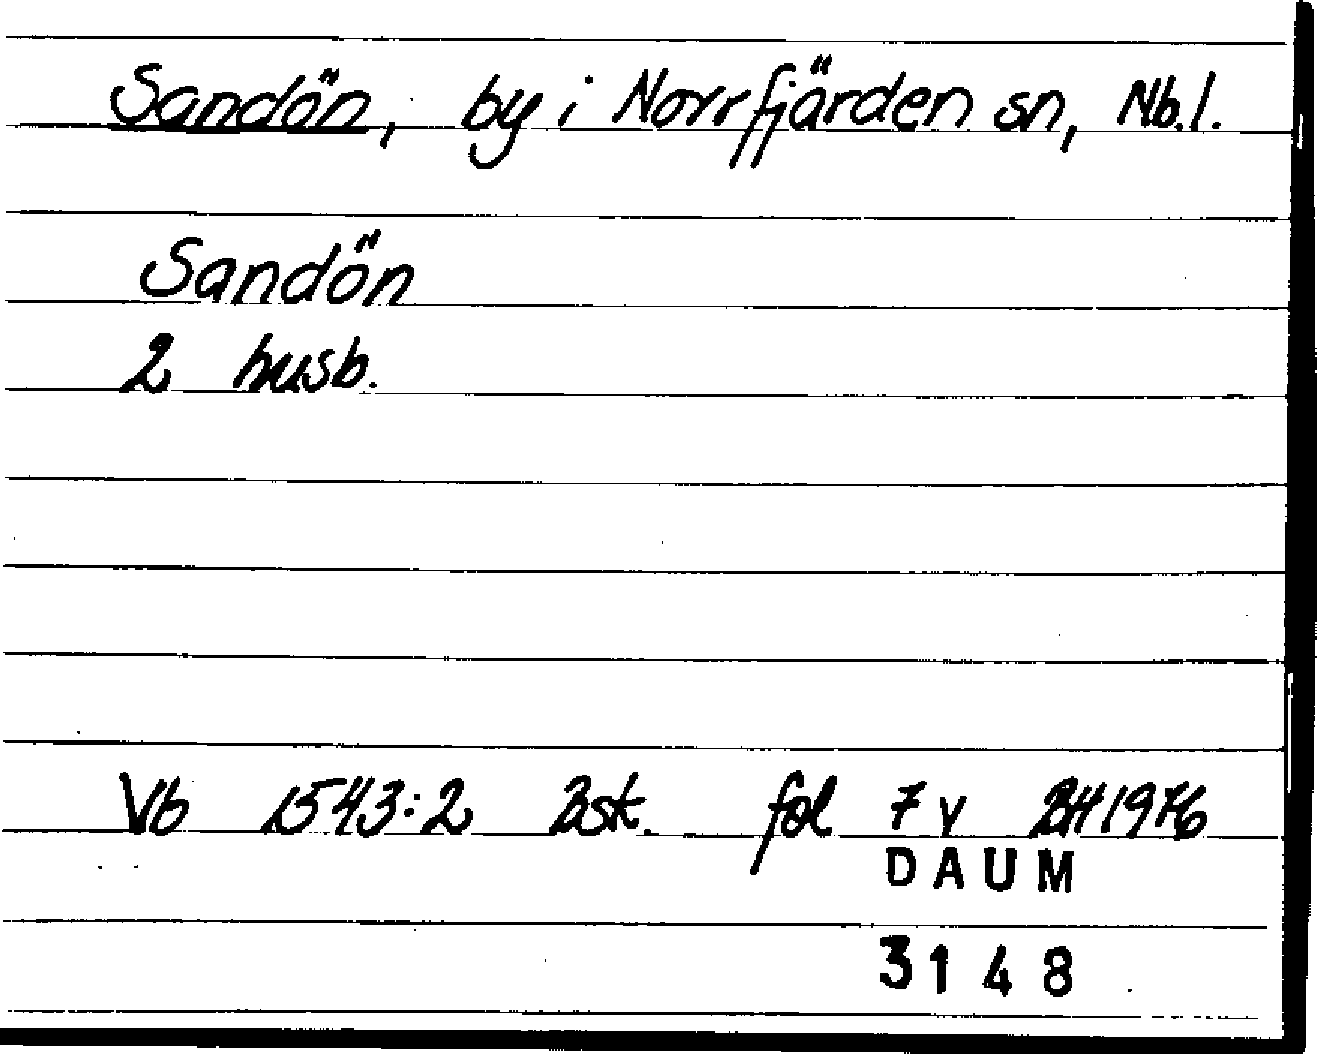 Sandön, by i Norrfjärden sn, Nb.l.
Sandön
2 husb.
Vb 1543:2 Bsk. fol 7 v BH 1976
DAUM
3148